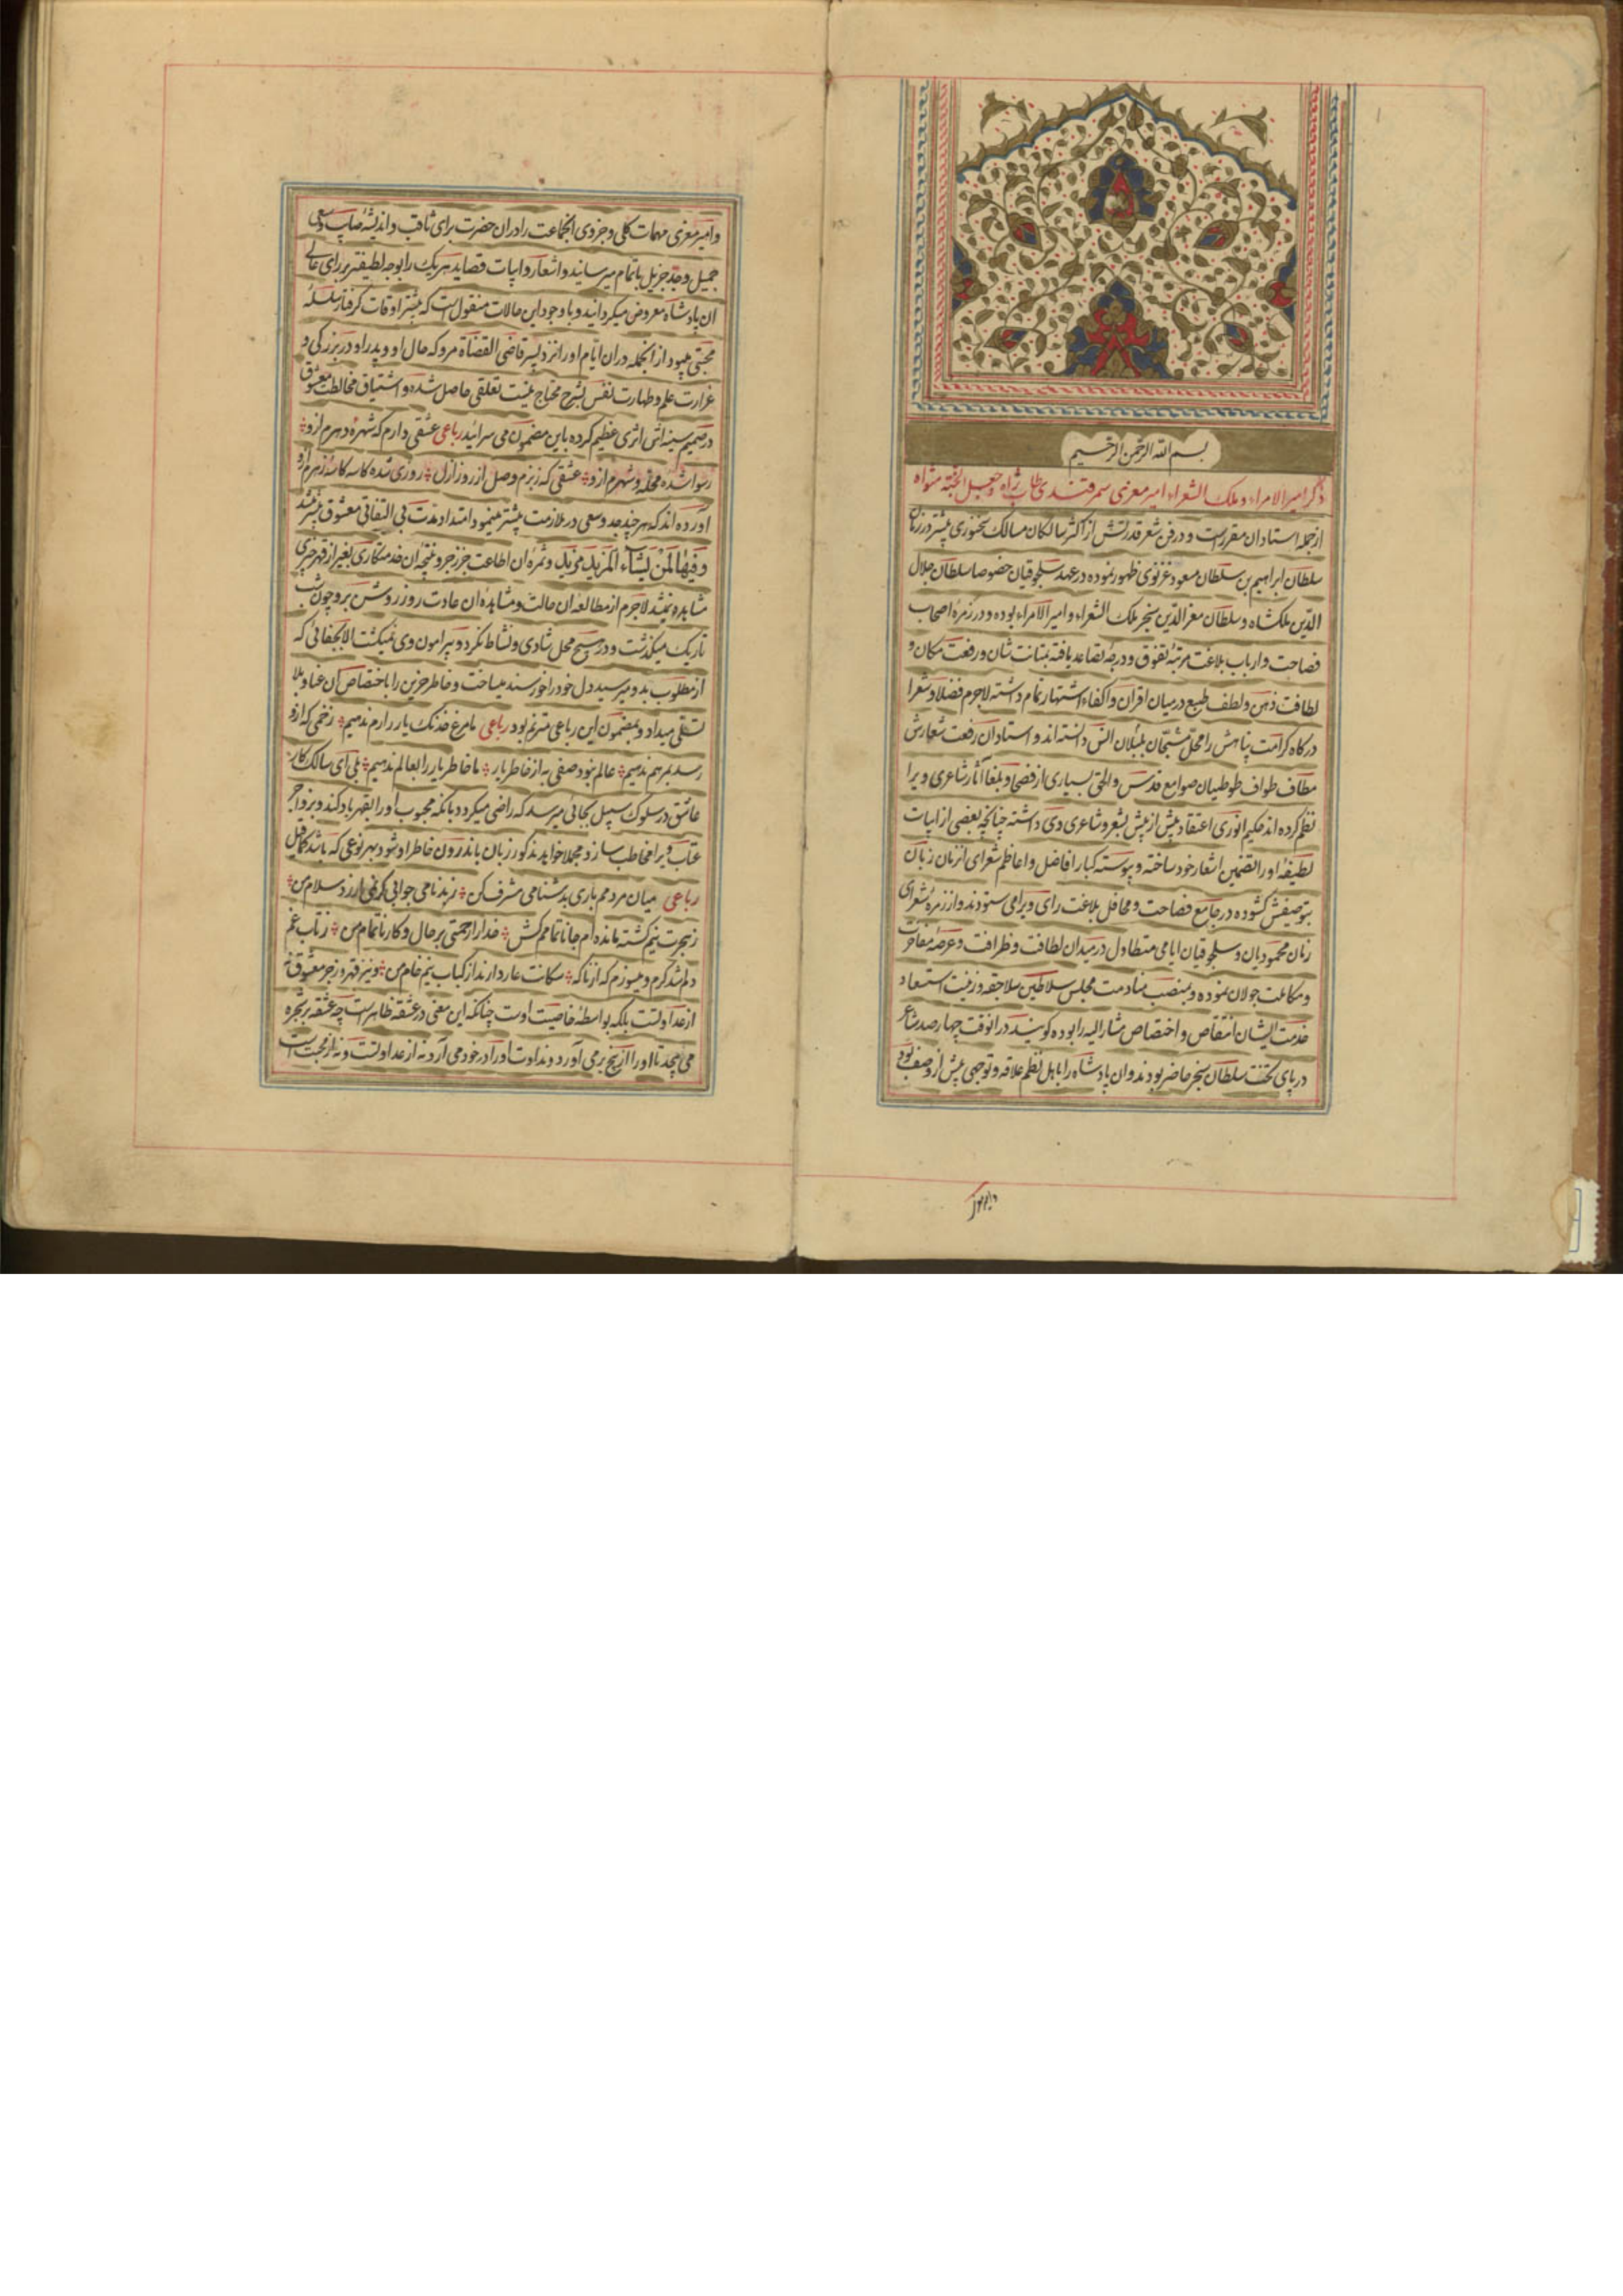 بسم الله الرحمن الرحیم
ذکر امیر الامراء و ملک الشعراء امیر معزی سمرقندی طاب ثراه و جعل الجنة مثواه
از جمله استادان مقررست و در فن شعر قدرتش از اکثر سالکان مسالک سخنوری بیشتر در زمان
سلطان ابراهیم بن سلطان مسعود غزنوی ظهور نموده در عهد سلجوقیان خصوصا سلطان جلال
الدین ملکشاه و سلطان معز الدین سنجر ملک الشعراء و امیر الامراء بوده و در زمرهٔ اصحاب
فصاحت و ارباب بلاغت مرتبهٔ تفوق و درجهٔ تصاعد یافته بمتانت شان و رفعت مکان و
لطافت ذهن و لطف طبع درمیان اقران و اکفاء اشتهار تمام داشته لاجرم فضلا و شعرا
درکاه کرامت پناهش را محل بلبلان انس دانسته اند و استادان رفعت شعارش
مطاف طواف طوطیان صوامع قدس والحق بسیاری از فصحا و بلغا آثار شاعری ویرا
نظم کرده اند حکیم انوری اعتقاد بیش از پیش بشعر و شاعری وی داشته چنانچه بعضی از ابیات
لطیفهٔ او را تضمین اشعار خود ساخته و پیوسته کبار افاضل و اعاظم شعرای انزمان زبان
بتوصیفش کشوده در مجامع فصاحت و محافل بلاغت رای ویرا می ستودند و از زمرهٔ شعرای
زمان محمودیان و سلجوقیان ایامی متطاول در میدان لطافت و ظرافت و عرصهٔ مفاخرت
و مکاملت جولان نموده و بمنصب منادمت مجلس سلاطین سلاجقه و زینت استسعاد
خدمت ایشان و اختصاص مشارالیه را بوده کویند در انوقت چهارصد شاعر
در پای تخت سلطان سنجر حاضر بودند و ان پادشاه را باهل نظم علاقه و توجهی بیش از وصف بود
و امیر معزی
و امیر معزی مهمات کلی و جزوی انجماعت را در ان حضرت برای ثاقب و اندیشهٔ صایب و سعی
جمیل و جد جزیل باتمام میرسانید و اشعار و ابیات قصاید هریک را بوجه لطیفتر برای عالی
ان پادشاه معروض میکردانید و با وجود این حالات منقول است که بیشتر اوقات کرفتار سلسلهٔ
محبتی میبود از انجمله دران ایام او را نزد پسر قاضی القضاة مرو که حال او و پدر او در بزرکی و
غزارت علم و طهارت نفس بشرح محتاج نیست تعلقی حاصل شده و اشتیاق مخالطت معشوق
در صمیم سینه اش اثری عظیم کرده باین مضمون می سراید رباعی عشقی دارم که شهرهٔ دهرم ازو
رسوا شده محله و شهرم ازو عشقی که ز بزم وصل از روز ازل روزی شده کاسه کاسه زهرم ازو
آورده اند که هر چند جد و سعی در ملازمت بیشتر مینمود امتداد مدت بی التفاتی معشوق بیشتر میشد
و فیها لمن یشاء المزید مزید و ثمرهٔ ان اطاعت جز زجر و نتیجهٔ ان خدمتکاری بغیر از قهر چیزی
مشاهده نمیشد لاجرم از مطالعهٔ ان حالت و مشاهدهٔ ان عادت روز روشن برو چون شب
تاریک میکذشت و در هیچ محل شادی و نشاط نکرد و پیرامون وی نمیکشت الا بجفائی که
از مطلوب بدو میرسید دل خود را خورسند میساخت و خاطر حزین را باختصاص ان عنا و بلا
تسلی میداد و بمضمون این رباعی مترنم بود رباعی ما مرغ خدنک یار را رم ندهیم زخمی که ازو
رسد بمرهم ندهیم عالم نبود صفی به از خاطر یار ما خاطر یار را بعالم ندهیم بلی ای سالک کار
عاشق در سلوک سبیل بجائی میرسد که راضی میکردد بانکه محبوب او را بقهر یاد کند و بزواجر
عتاب ویرا مخاطب سازد و مجملا خواهد مذکور زبان یا اندرون خاطر او شود بهر نوعی که باشد
رباعی میان مردمم باری بدشنامی مشرف کن ز بدنامی جوابی کر نمی ارزد سلام من
ز هجرت نیم کشته مانده ام جانا تمامم کش خدا را رحمتی بر حال و کار ناتمام من ز تاب غم
دلم شد کرم و میسوزم که از ناکه سکانت عار دارند از کباب نیم خام من و نیز قهر و زجر معشوق نه
از عداوتست بلکه بواسطهٔ خاصیت اوست چنانکه این معنی در عشقه ظاهر است چه عشقه بر شجره
می پیچد تا او را از بیخ برمی آورد و نداوت او را درخود می آرد نه از عداوتست و نه از محبت است